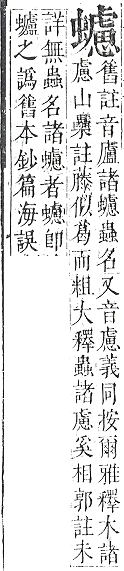 ⿰虫慮舊註音廬諸⿰虫慮蟲名又音慮義同按爾雅釋木諸
慮山櫐註藤似葛而粗大釋蟲諸慮奚相郭註未
詳無蟲名諸⿰虫慮者⿰虫慮即
蠦之譌舊本鈔篇海誤